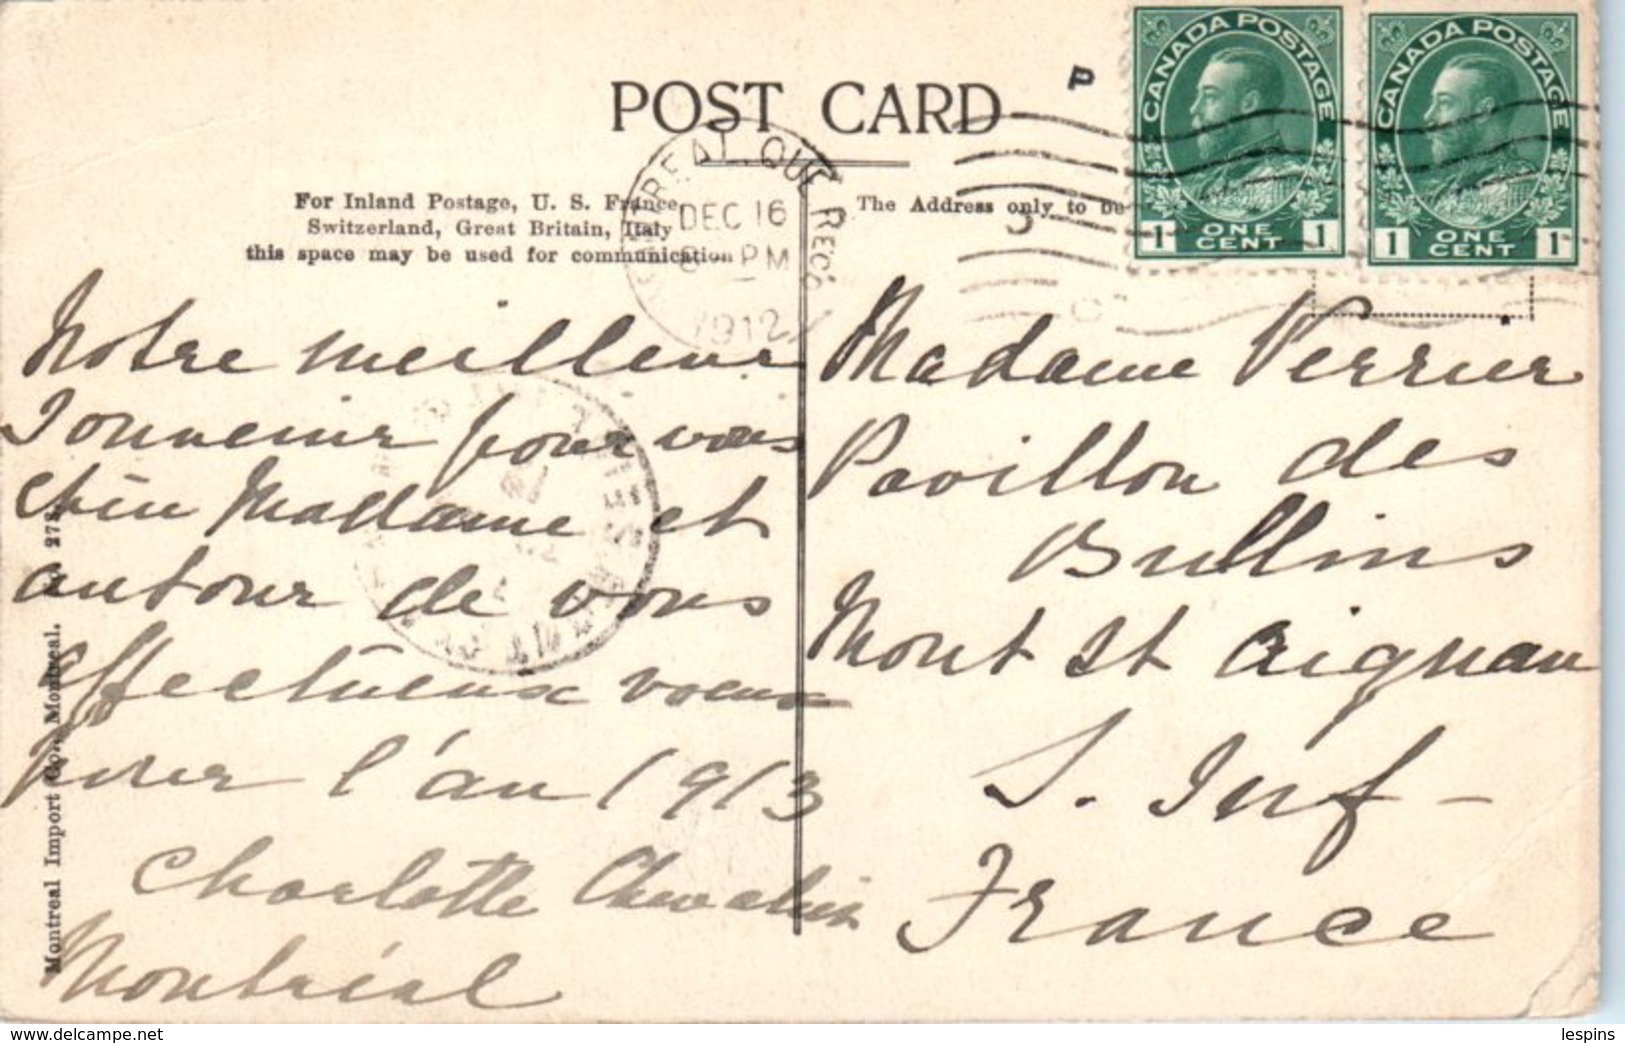 POST CARD
P
CANADA POSTAGE
1 ONE CENT 1
CANADA POSTAGE
1 ONE CENT 1
MONTREAL, QUE REC'D
DEC 16
PM
1912
For Inland Postage, U. S. France,
Switzerland, Great Britain, Italy
this space may be used for communication
The Address only to be
Notre meilleur
Souvenir pour vous
Chère Madame et
autour de vous
affectueux voeux
pour l'an 1913
Charlotte Chevalier
Montréal
Madame Verrier
Pavillon des
Bullins
Mont St Aignan
S. Inf -
France
Montreal Import Co., Montreal. 278.
lespins